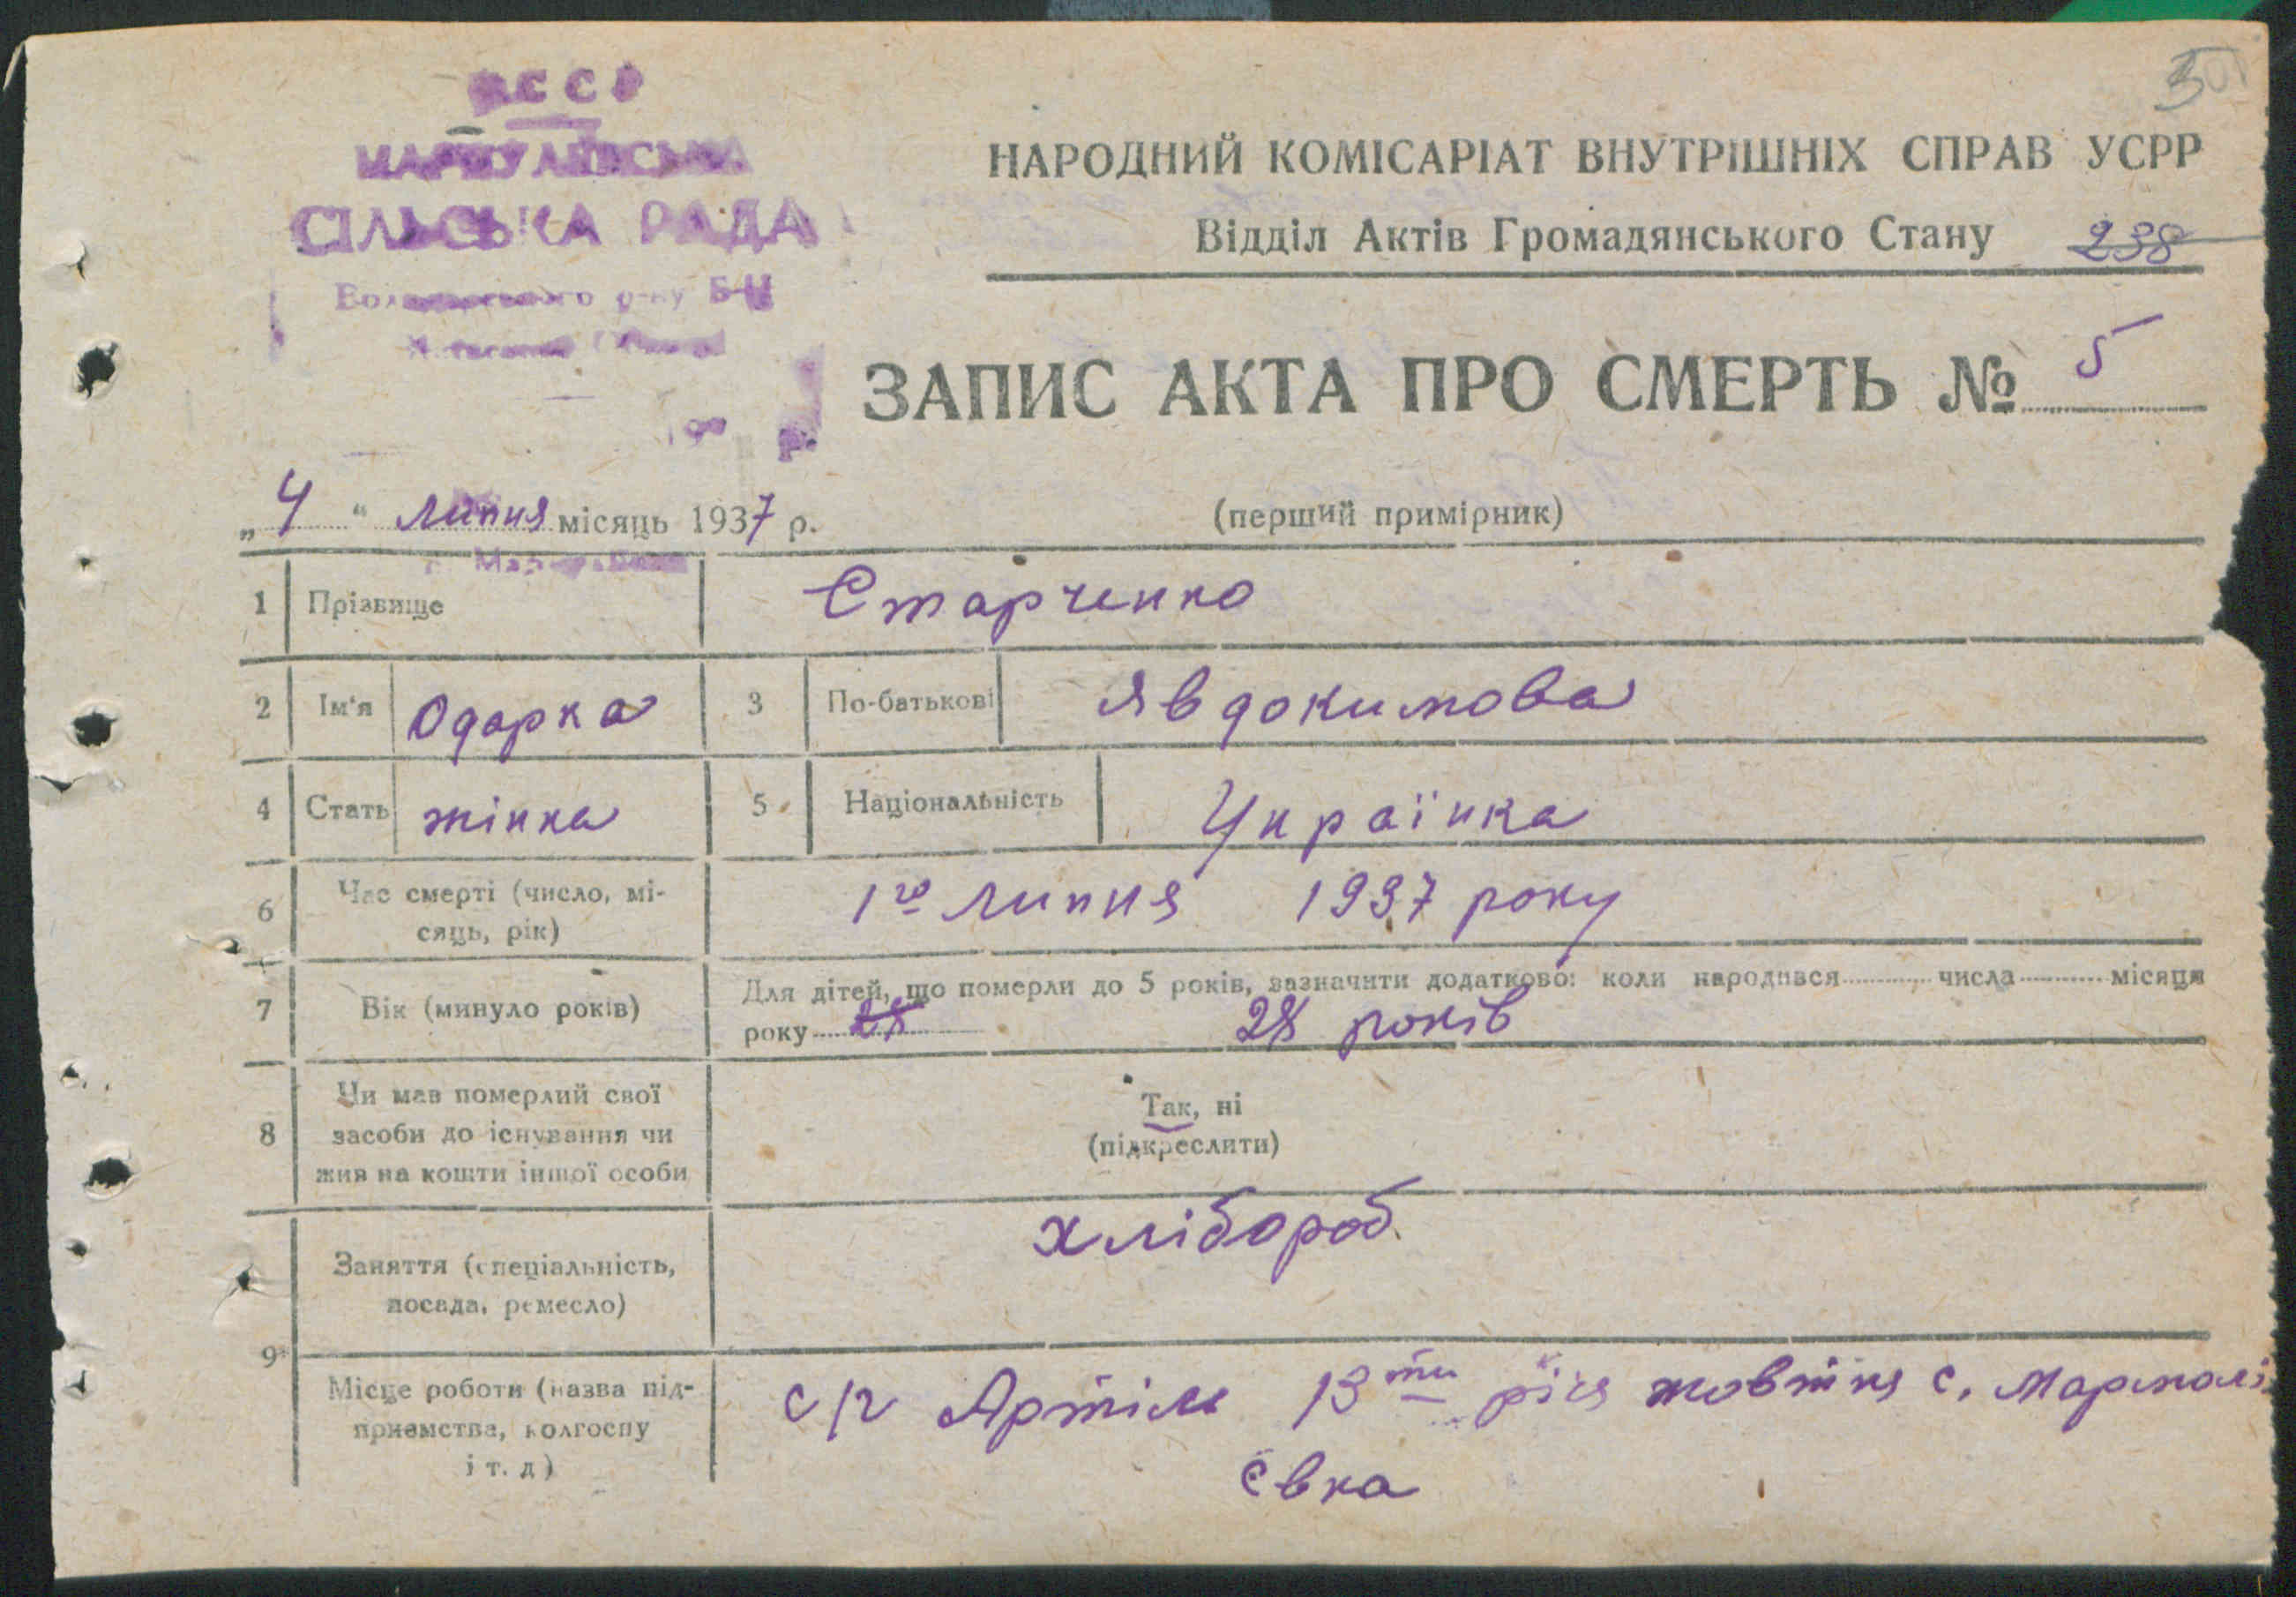 УССР
СІЛЬСЬКА РАДА
р-ну
50
НАРОДНИЙ КОМІСАРІАТ ВНУТРІШНІХ СПРАВ УСРР
Відділ Актів Громадянського Стану 238
ЗАПИС АКТА ПРО СМЕРТЬ № 5
„4“ липня місяць 1937 р.
(перший примірник)
1 Прізвище Старченко
2 Ім'я Одарка 3 По-батькові Явдокимова
4 Стать жінка 5 Національність Українка
6 Час смерті (число, мі-
сяць, рік) 1го липня 1937 року
7 Вік (минуло років) Для дітей, що померли до 5 років, зазначити додатково: коли народився числа місяця
року 28 28 років
8 Чи мав померлий свої
засоби до існування чи
жив на кошти іншої особи
Так, ні
(підкреслити)
9 Заняття (спеціальність,
посада, ремесло) хлібороб.
Місце роботи (назва під-
приємства, колгоспу
і т. д) с/г Артіль 13ти річя жовтня с.
євка